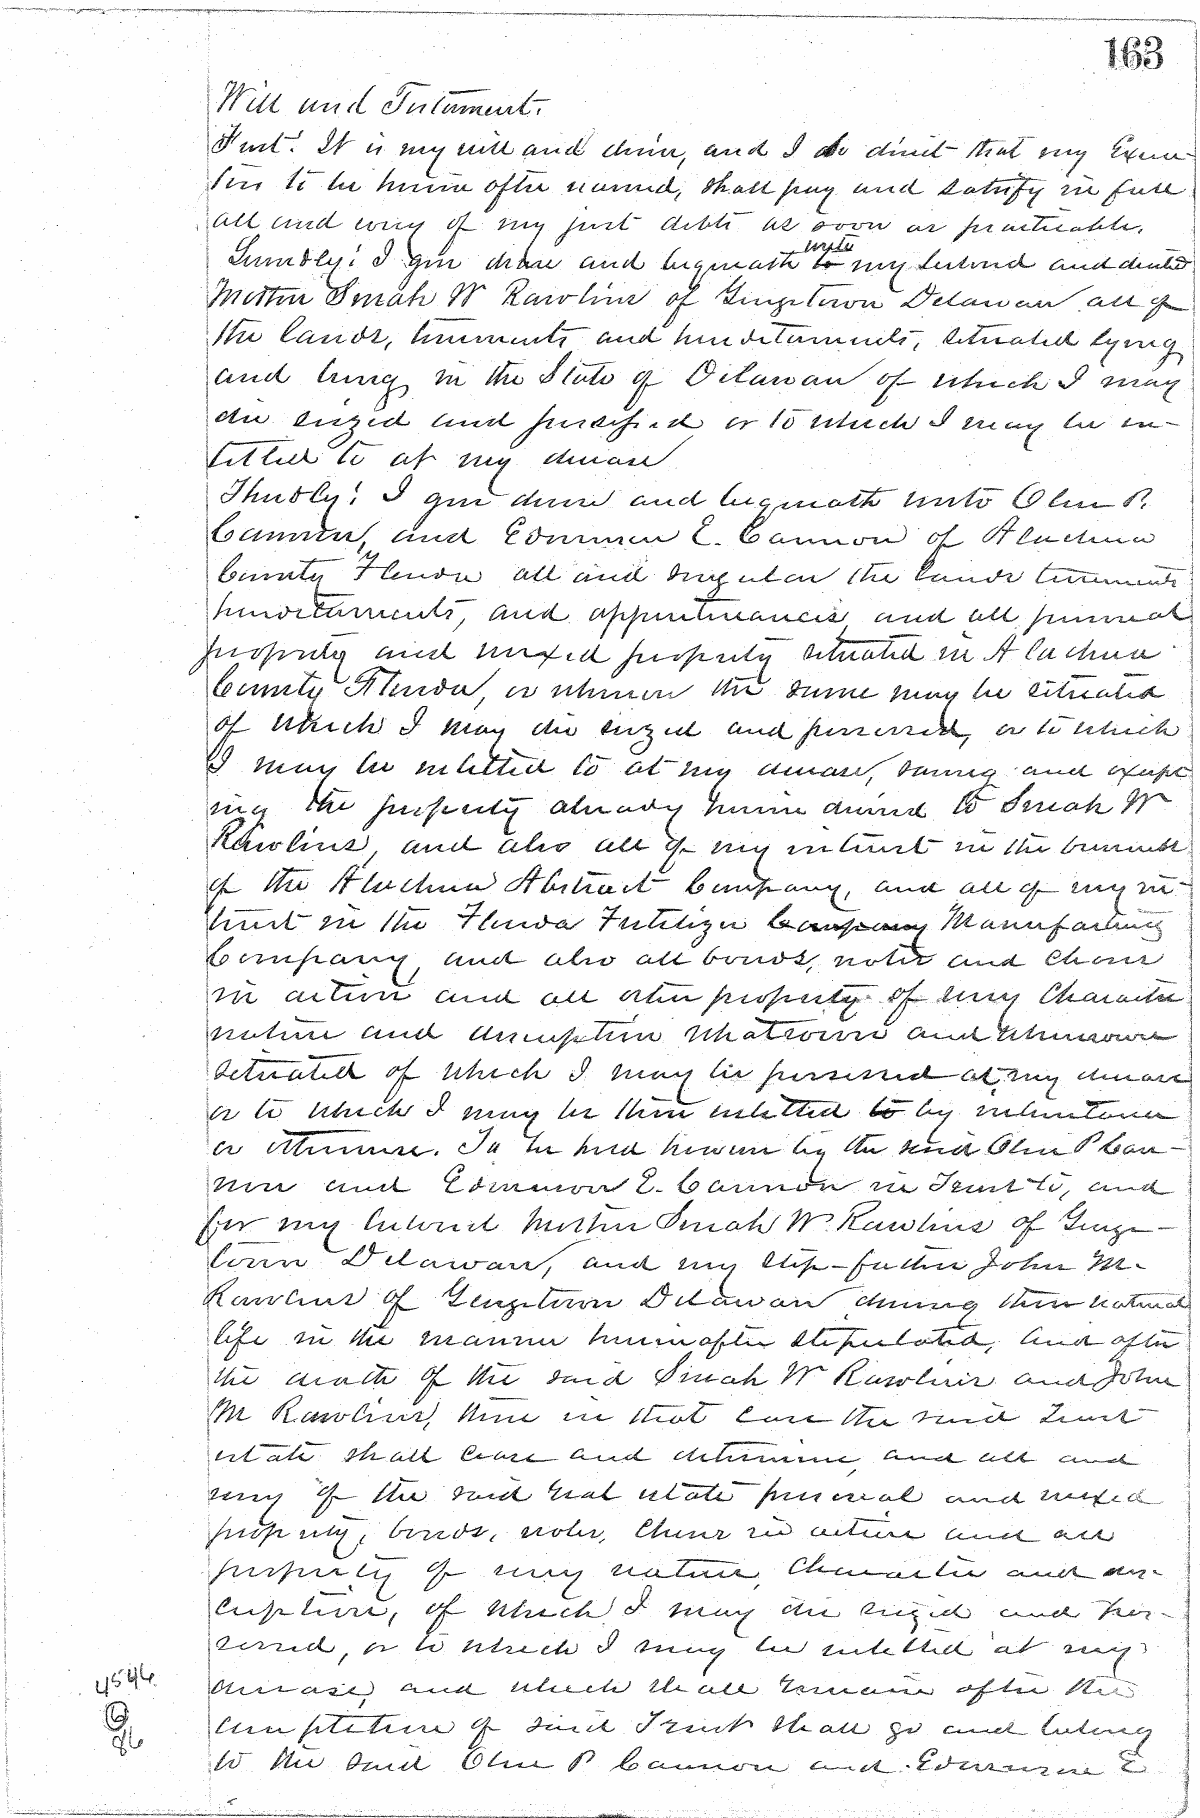 163
Will and Testament.
First: It is my will and desire, and I do direct that my Execu-
tors to be herein after named, shall pay and satisfy in full
all and every of my just debts as soon as practicable.
Secondly: I give devise and bequeath to unto my beloved and devoted
Mother Sarah W Rawlins of Georgetown Delaware all of
the lands, tenements and hereditaments, situated lying
and being in the State of Delaware of which I may
die seized and possessed or to which I may be en-
titled to at my decease
Thirdly: I give devise and bequeath unto Olin P.
Cannon, and Edmnson E. Cannon of Alachua
County Florida all and singular the lands tenements
hereditaments, and appurtenances and all personal
property and mixed property situated in Alachua
County Florida, or wherever the same may be situated
of which I may die seized and possessed, or to which
I may be entitled to at my decease, saving and except-
ing the property already herein devised to Sarah W
Rawlins, and also all of my interest in the business
of the Alachua Abstract Company, and all of my in-
terest in the Florida Fertilizer Company Manufacturing
Company, and also all bonds, notes and choses
in action and all other property of every Character
nature and description whatsoever and wheresoever
situated of which I may be possessed at my decease
or to which I may be then entitled to by inheritance
or otherwise. To be held however by the said Olin P Can-
non and E. Cannon in Trust to, and
for my beloved Mother Sarah W. Rawlins of George-
town Delaware, and my step-father John M.
Rawlins of Georgetown Delaware during their natural
life in the manner hereinafter stipulated, and after
the death of the said Sarah W Rawlins and John
M Rawlins, then in that case the said Trust
estate shall cease and determine, and all and
every of the said real estate personal and mixed
property, bonds, notes, choses in action and all
property of every nature, Character and des-
cription, of which I may die seized and pos-
sessed, or to which I may be entitled at my
decease, and which shall remain after the
completion of said Trust shall go and belong
to the said Olin P Cannon and E
4546